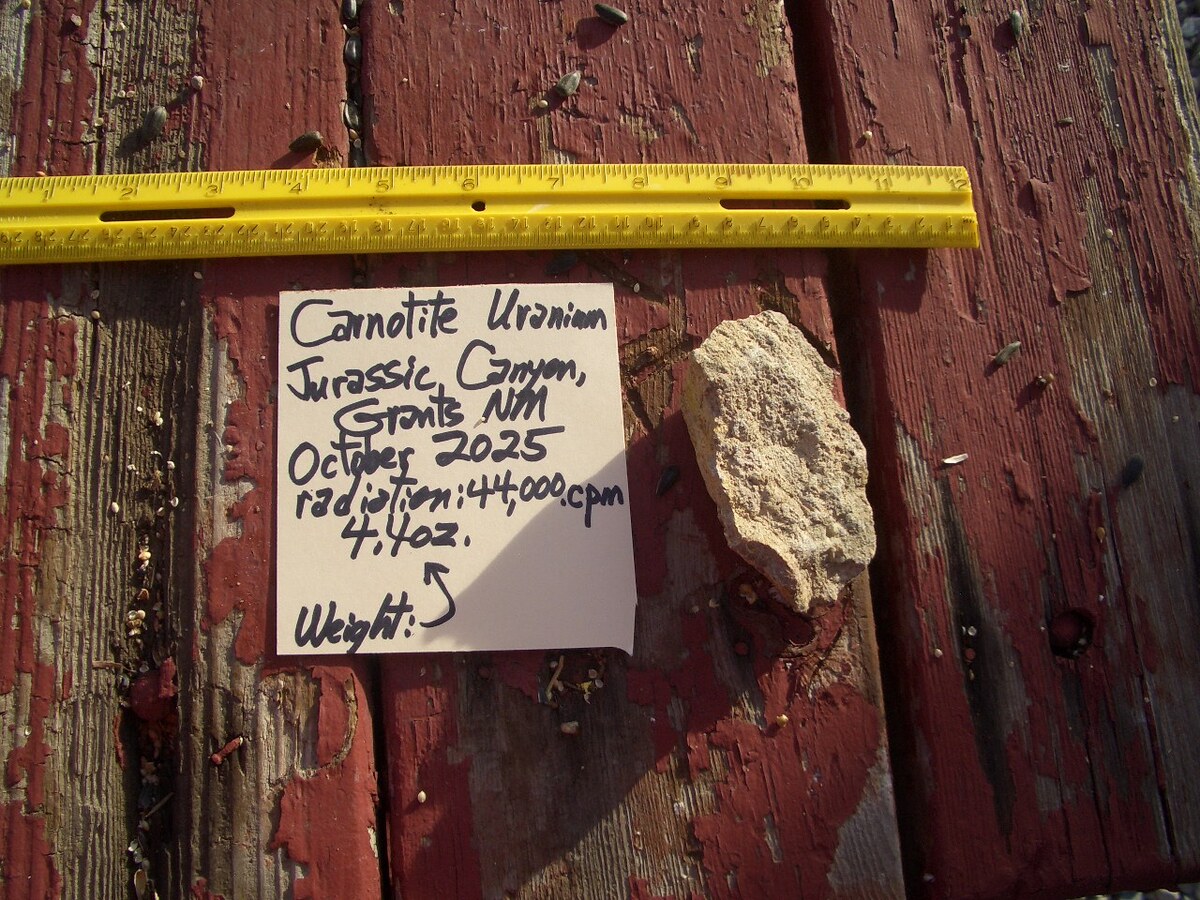 1 2 3 4 5 6 7 8 9 10 11 12
Carnotite Uranium
Jurassic, Canyon,
Grants NM
October 2025
radiation: 44,000.cpm
4.4oz.
Weight: